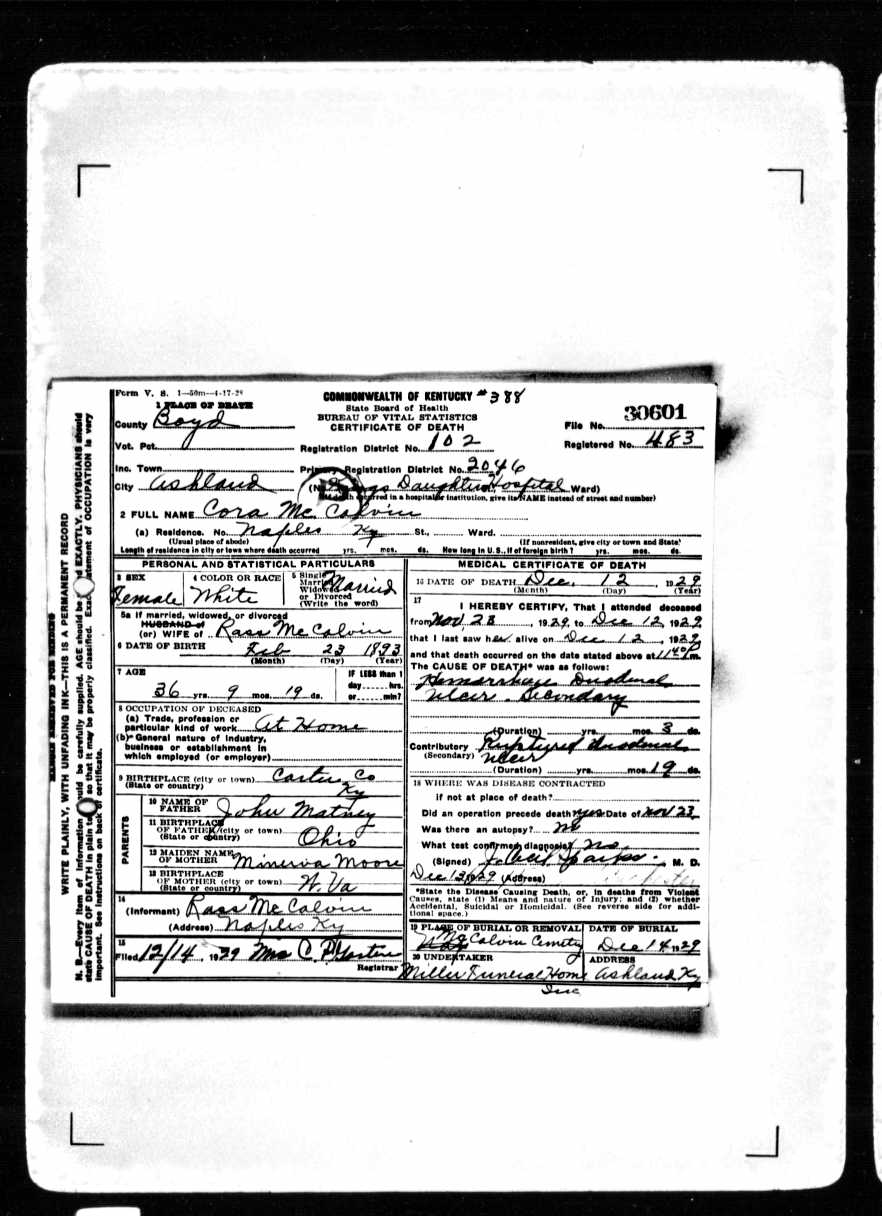 Form V. S. 1—50m—4-17-28
COMMONWEALTH OF KENTUCKY #388
State Board of Health
BUREAU OF VITAL STATISTICS
CERTIFICATE OF DEATH
File No. 30601
Registered No. 483
1 PLACE OF DEATH
County Boyd
Vot. Pct.
Registration District No. 102
Inc. Town
Primary Registration District No. 2046
City Ashland (No. Kings Daughters Hospital Ward)
(If death occurred in a hospital or institution, give its NAME instead of street and number)
2 FULL NAME Cora Mc Calvin
(a) Residence. No. Naples Ky St., Ward.
(Usual place of abode) (If nonresident, give city or town and State)
Length of residence in city or town where death occurred yrs. mos. ds. How long in U. S., if of foreign birth? yrs. mos. ds.
PERSONAL AND STATISTICAL PARTICULARS
3 SEX Female
4 COLOR OR RACE White
5 Single Married Widowed or Divorced (Write the word) Married
5a If married, widowed, or divorced
HUSBAND of
(or) WIFE of Ross Mc Calvin
6 DATE OF BIRTH Feb 23 1893
(Month) (Day) (Year)
7 AGE 36 yrs. 9 mos. 19 ds.
IF LESS than 1 day hrs. or min?
8 OCCUPATION OF DECEASED
(a) Trade, profession or
particular kind of work At Home
(b) General nature of industry,
business or establishment in
which employed (or employer)
9 BIRTHPLACE (city or town) Carter Co
(State or country) Ky
PARENTS
10 NAME OF FATHER John Matney
11 BIRTHPLACE OF FATHER (city or town) (State or country) Ohio
12 MAIDEN NAME OF MOTHER Minerva Moore
13 BIRTHPLACE OF MOTHER (city or town) (State or country) W. Va
14
(Informant) Ross Mc Calvin
(Address) Naples Ky
15
Filed 12/14, 1929 Mrs C. P.
Registrar
MEDICAL CERTIFICATE OF DEATH
16 DATE OF DEATH Dec. 12, 1929
(Month) (Day) (Year)
17
I HEREBY CERTIFY, That I attended deceased
from Nov 23, 1929, to Dec 12, 1929
that I last saw her alive on Dec 12, 1929
and that death occurred on the date stated above at 1140 P m.
The CAUSE OF DEATH* was as follows:
Hemorrhage Duodenal
Ulcer. Secondary
(Duration) yrs. mos. 3 ds.
Contributory Ruptured Duodenal
(Secondary) Ulcer
(Duration) yrs. mos. 19 ds.
18 WHERE WAS DISEASE CONTRACTED
if not at place of death?
Did an operation precede death? yes Date of Nov 23
Was there an autopsy? no
What test confirmed diagnosis? no.
(Signed) M. D.
Dec 13, 1929 (Address)
*State the Disease Causing Death, or, in deaths from Violent
Causes, state (1) Means and nature of Injury; and (2) whether
Accidental, Suicidal or Homicidal. (See reverse side for additional space.)
19 PLACE OF BURIAL OR REMOVAL Mc Calvin Cemetery
DATE OF BURIAL Dec 14 1929
20 UNDERTAKER Miller Funeral Home Inc
ADDRESS Ashland Ky
MARGIN RESERVED FOR BINDING
WRITE PLAINLY, WITH UNFADING INK—THIS IS A PERMANENT RECORD
N. B.—Every item of information should be carefully supplied. AGE should be stated EXACTLY. PHYSICIANS should
state CAUSE OF DEATH in plain terms, so that it may be properly classified. Exact statement of OCCUPATION is very
important. See instructions on back of certificate.